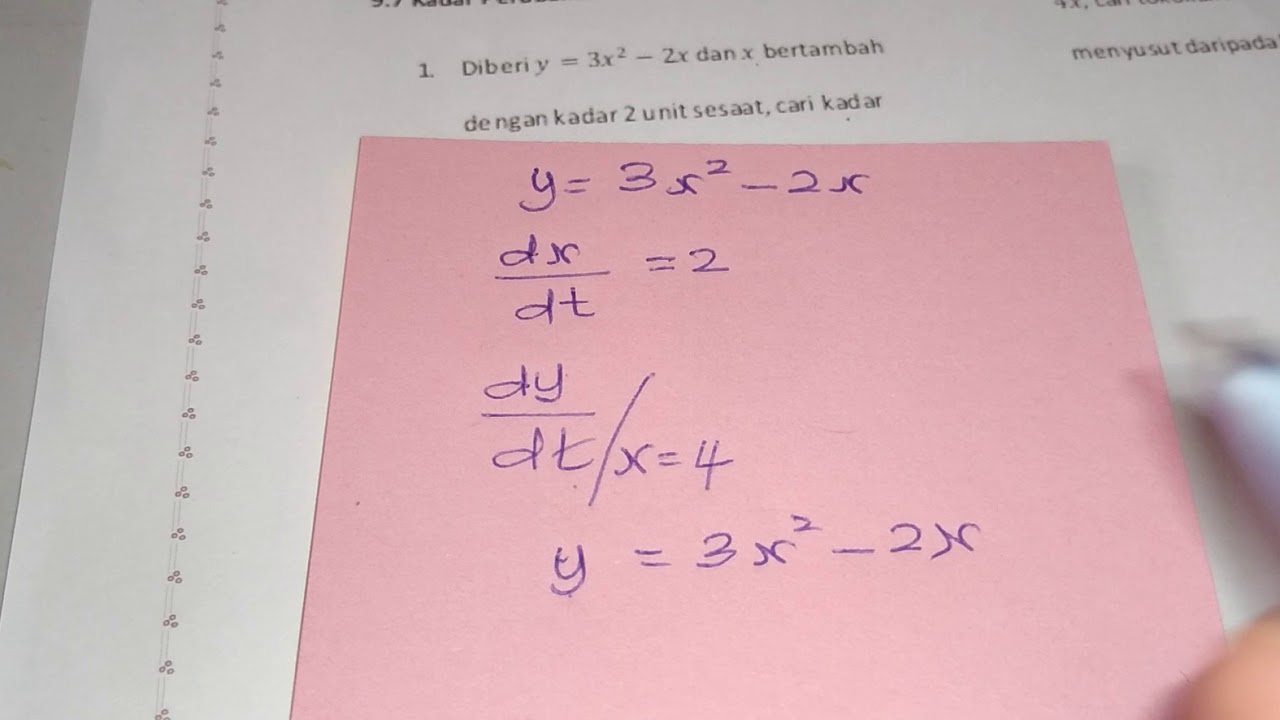 1. Diberi y = 3x² − 2x dan x bertambah
dengan kadar 2 unit sesaat, cari kadar
menyusut daripada
y = 3x² − 2x
dx/dt = 2
dy/dt / x = 4
y = 3x² − 2x